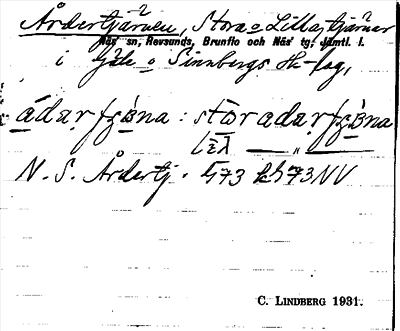 Årdertjärnen, Stora o Lilla, tjärnar
Näs' sn, Revsunds, Brunflo och Näs' tg, Jämtl. l.
i Gåle o Sinnbergs Sk-lag,
ådarfzåna : stōradarfzåna
N. S. Årdertj.
C. LINDBERG 1931.